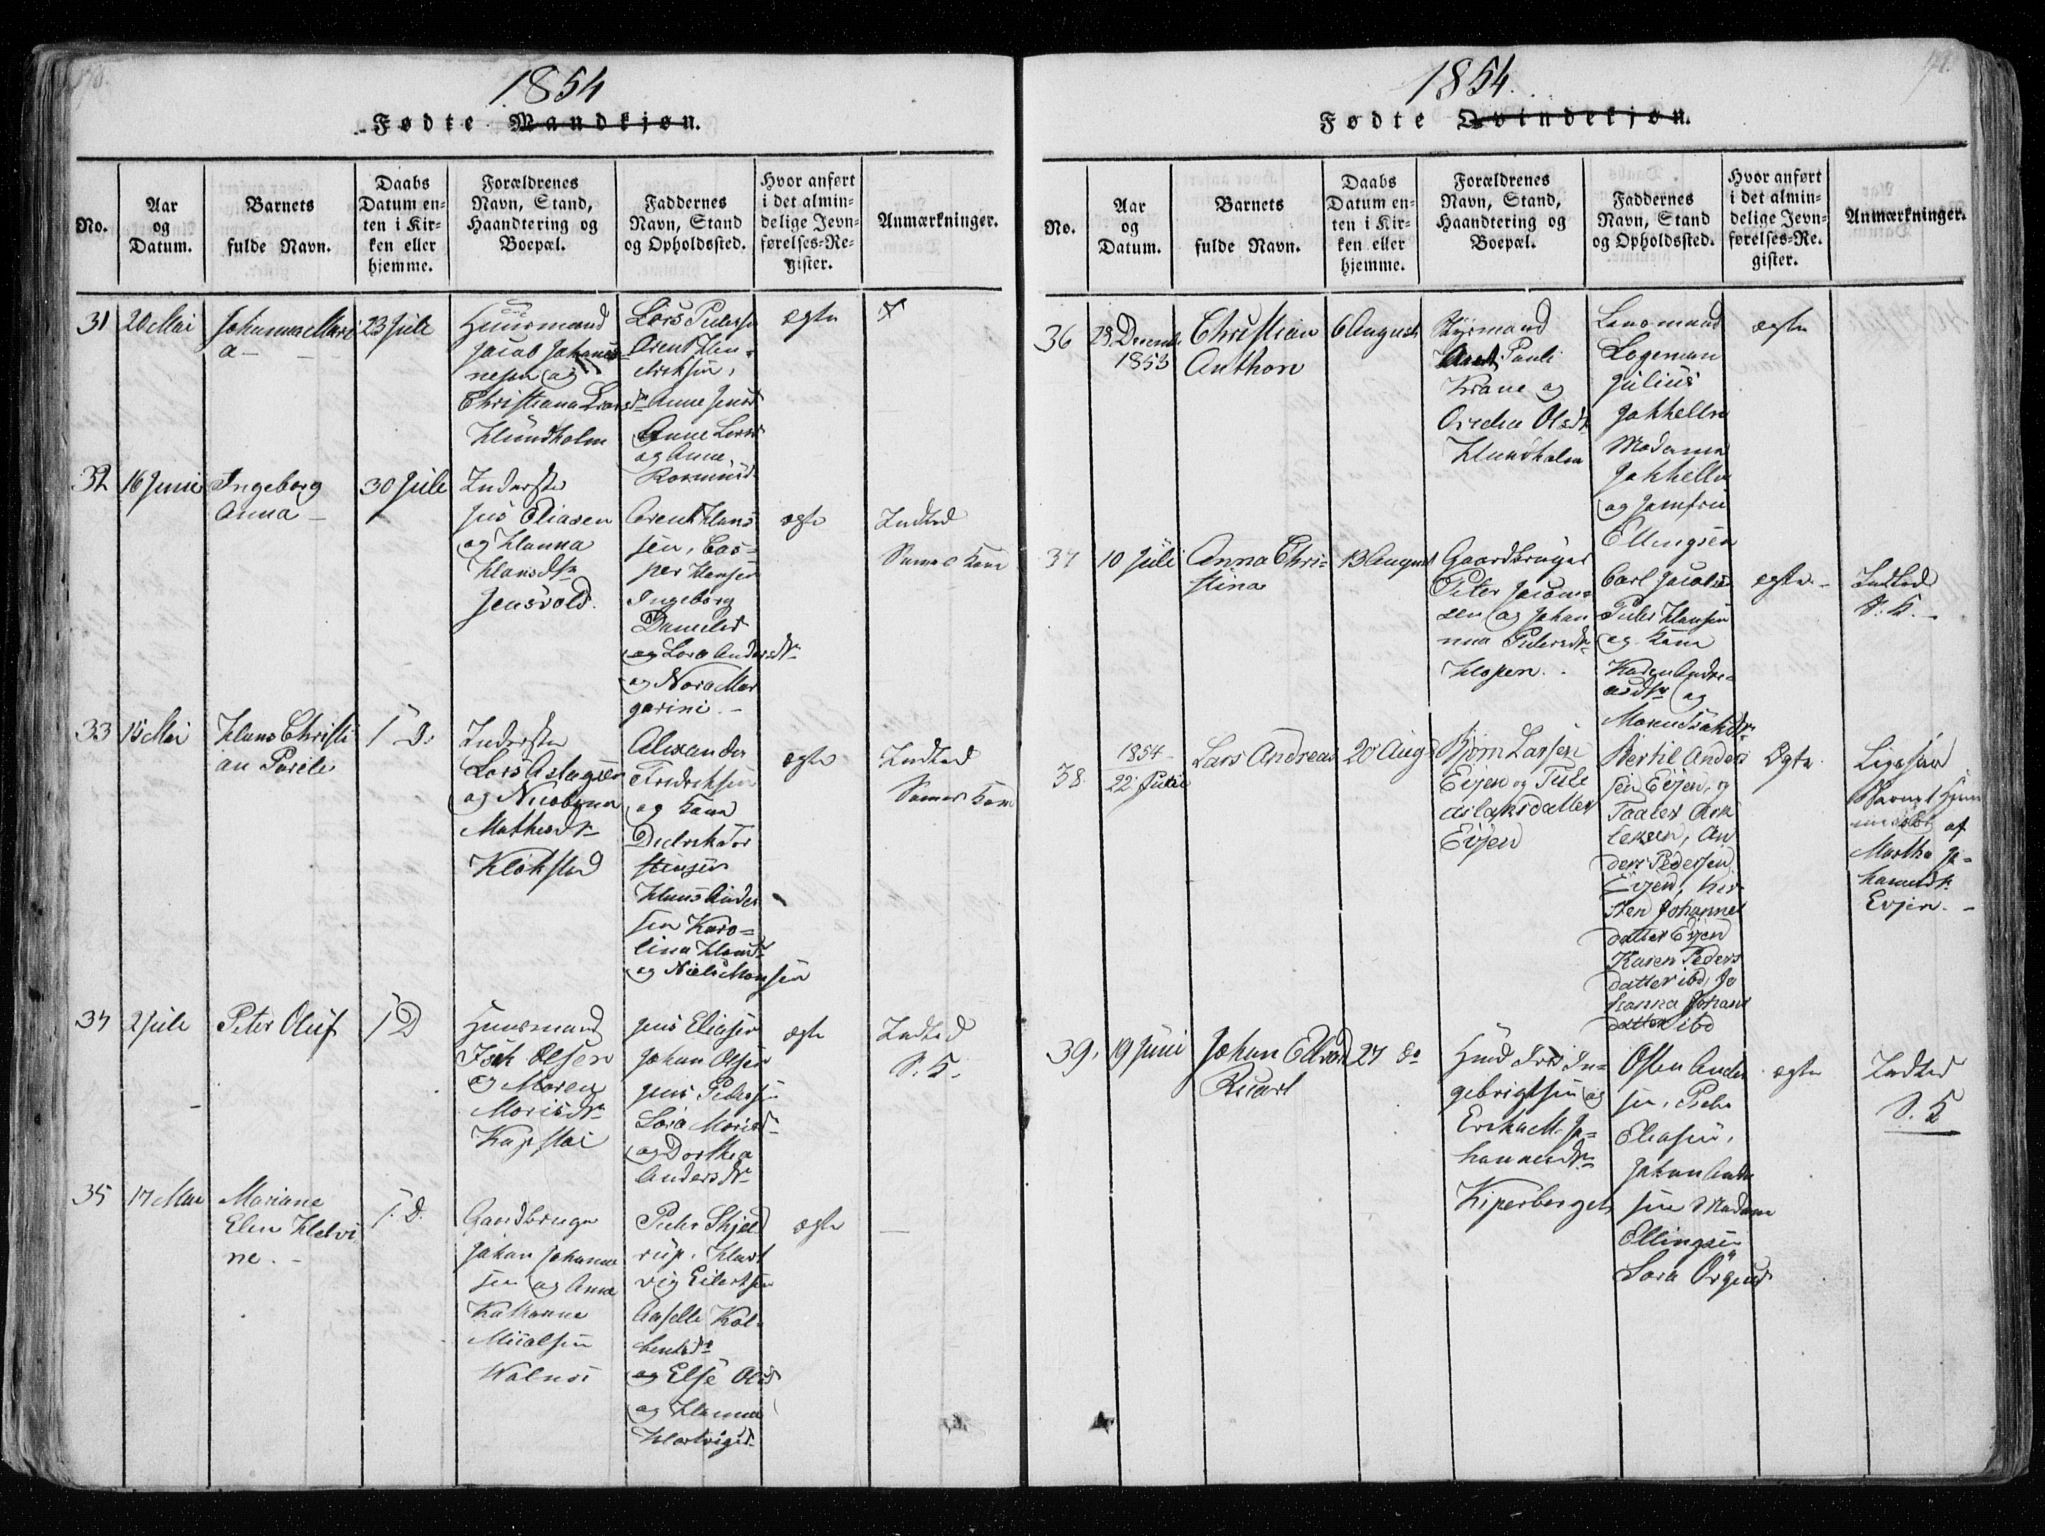 1854
Fødte Mandkjøn.
No.
Aar
og
Datum.
Barnets
fulde Navn.
Daabs
Datum en-
ten i Kir-
ken eller
hjemme.
Forældrenes
Navn, Stand,
Haandtering og
Boepæl.
Faddernes
Navn, Stand
og Opholdssted.
Hvor anført
i det almin-
delige Jevn-
førelses-Re-
gister.
Anmærkninger.
31
20 Mai
Johanna Mari
a
23 Juli
Huusmand
Jacob Johan
nesen og
Christiana Lars
Hundholm
Lars Peders
Arent Hen
driksen,
Anne Jensd
Anne Lars
og Anne
ægte
32
16 Juni
Ingeborg
Anna
30 Juli
Inderste
Jens Eliasen
og Hanna
Hansdtr
Jensvold.
Arent Hans
sen, Cas-
per Hansen
Ingeborg
Daniels
og Lara Andersdtr
og Nora Mar
grini.
ægte
Indted
Samme Kone
33
15 Mai
Hans Christi
an Parili
T D.
Inderste
Lars Aslagsen
og Nicolyna
Mathisdtr
Klokstad
Alexander
Fredriksen
og Kone
Didrik Tor
stensen
Hans Ander
sen Karo-
lina Hansd
og Niels Monsen
ægte
Indted
Samme Kone
34
2 Juli
Peter Oluf
T D
Huusmand
Isak Olsen
og Maren
Morisdtr
Kapstøi
Jens Eliasen
Johan Olsen
Jens Pedersen
Lara Morisd
og Dorthea
Andersdtr
ægte
Indted
S. K.
35
17 Mai
Mariane
Elen Helvi
ne.
T. D.
Gaardbruger
Johan Johanne
sen og Anna
Kathanne
Misalsen
Kalnes
Peder Skjeld
rup, Hart
vig Eilertsen
Aaselle Kol
bentsdr
og Else Olsd
og Hanna
Hartvigsd
ægte
1854.
Fødte Qvindekjøn.
No.
Aar
og
Datum.
Barnets
fulde Navn.
Daabs
Datum en-
ten i Kir-
ken eller
hjemme.
Forældrenes
Navn, Stand,
Haandtering og
Boepæl.
Faddernes
Navn, Stand
og Opholdssted.
Hvor anført
i det almin-
delige Jevn-
førelses-Re-
gister.
Anmærkninger.
36
23 Decemb
1853
Christian
Anthon
6 August
Styrmand
Pauli
Krane og
Ovedia Olsdtr
Hundholm
Lensmand
Lageman
Julius
Jakhelln
Madama
Jakhelln
og Jomfru
Ellingsen
ægte
37
10 Juli
Anna Chri-
stina
13 August
Gaardbruger
Peter Jacob-
sen og Johan
na Pedersdtr
Hopen.
Carl Jacobs
Peder Hansen
og Kone
Karen Andre-
asdtr og
Maren Isaksdtr
ægte.
Indted
S. K.
38.
1854
22. Julii
Lars Andreas
20 Aug
Bjørn Larsen
Evjen og Tule
Aslaksdatter
Evjen
Bertil Anders
sen Evjen, og
Taales Ask
lesen, An
ders Pedersen
Evjen, Kir
sten Johannes
datter Evjen
Karen Peders
datter ibd, Jo
hanna Johans
datter ibd
Ægte.
Ligesaa
Barnet Hjem
medøbt af
Martha Jo-
hannesdtr
Evjen.
39.
19 Juni
Johan Ellvard
Rikart
27 do
Huusmd Iver In-
gebrigtsen og
Erika M. Jo-
hannesdtr
Kiperberget
Osten Ander
sen, Peder
Eliasen,
Johan Ander
sen Madame
Ellingsen
Sara
ægte
Indted
S. K